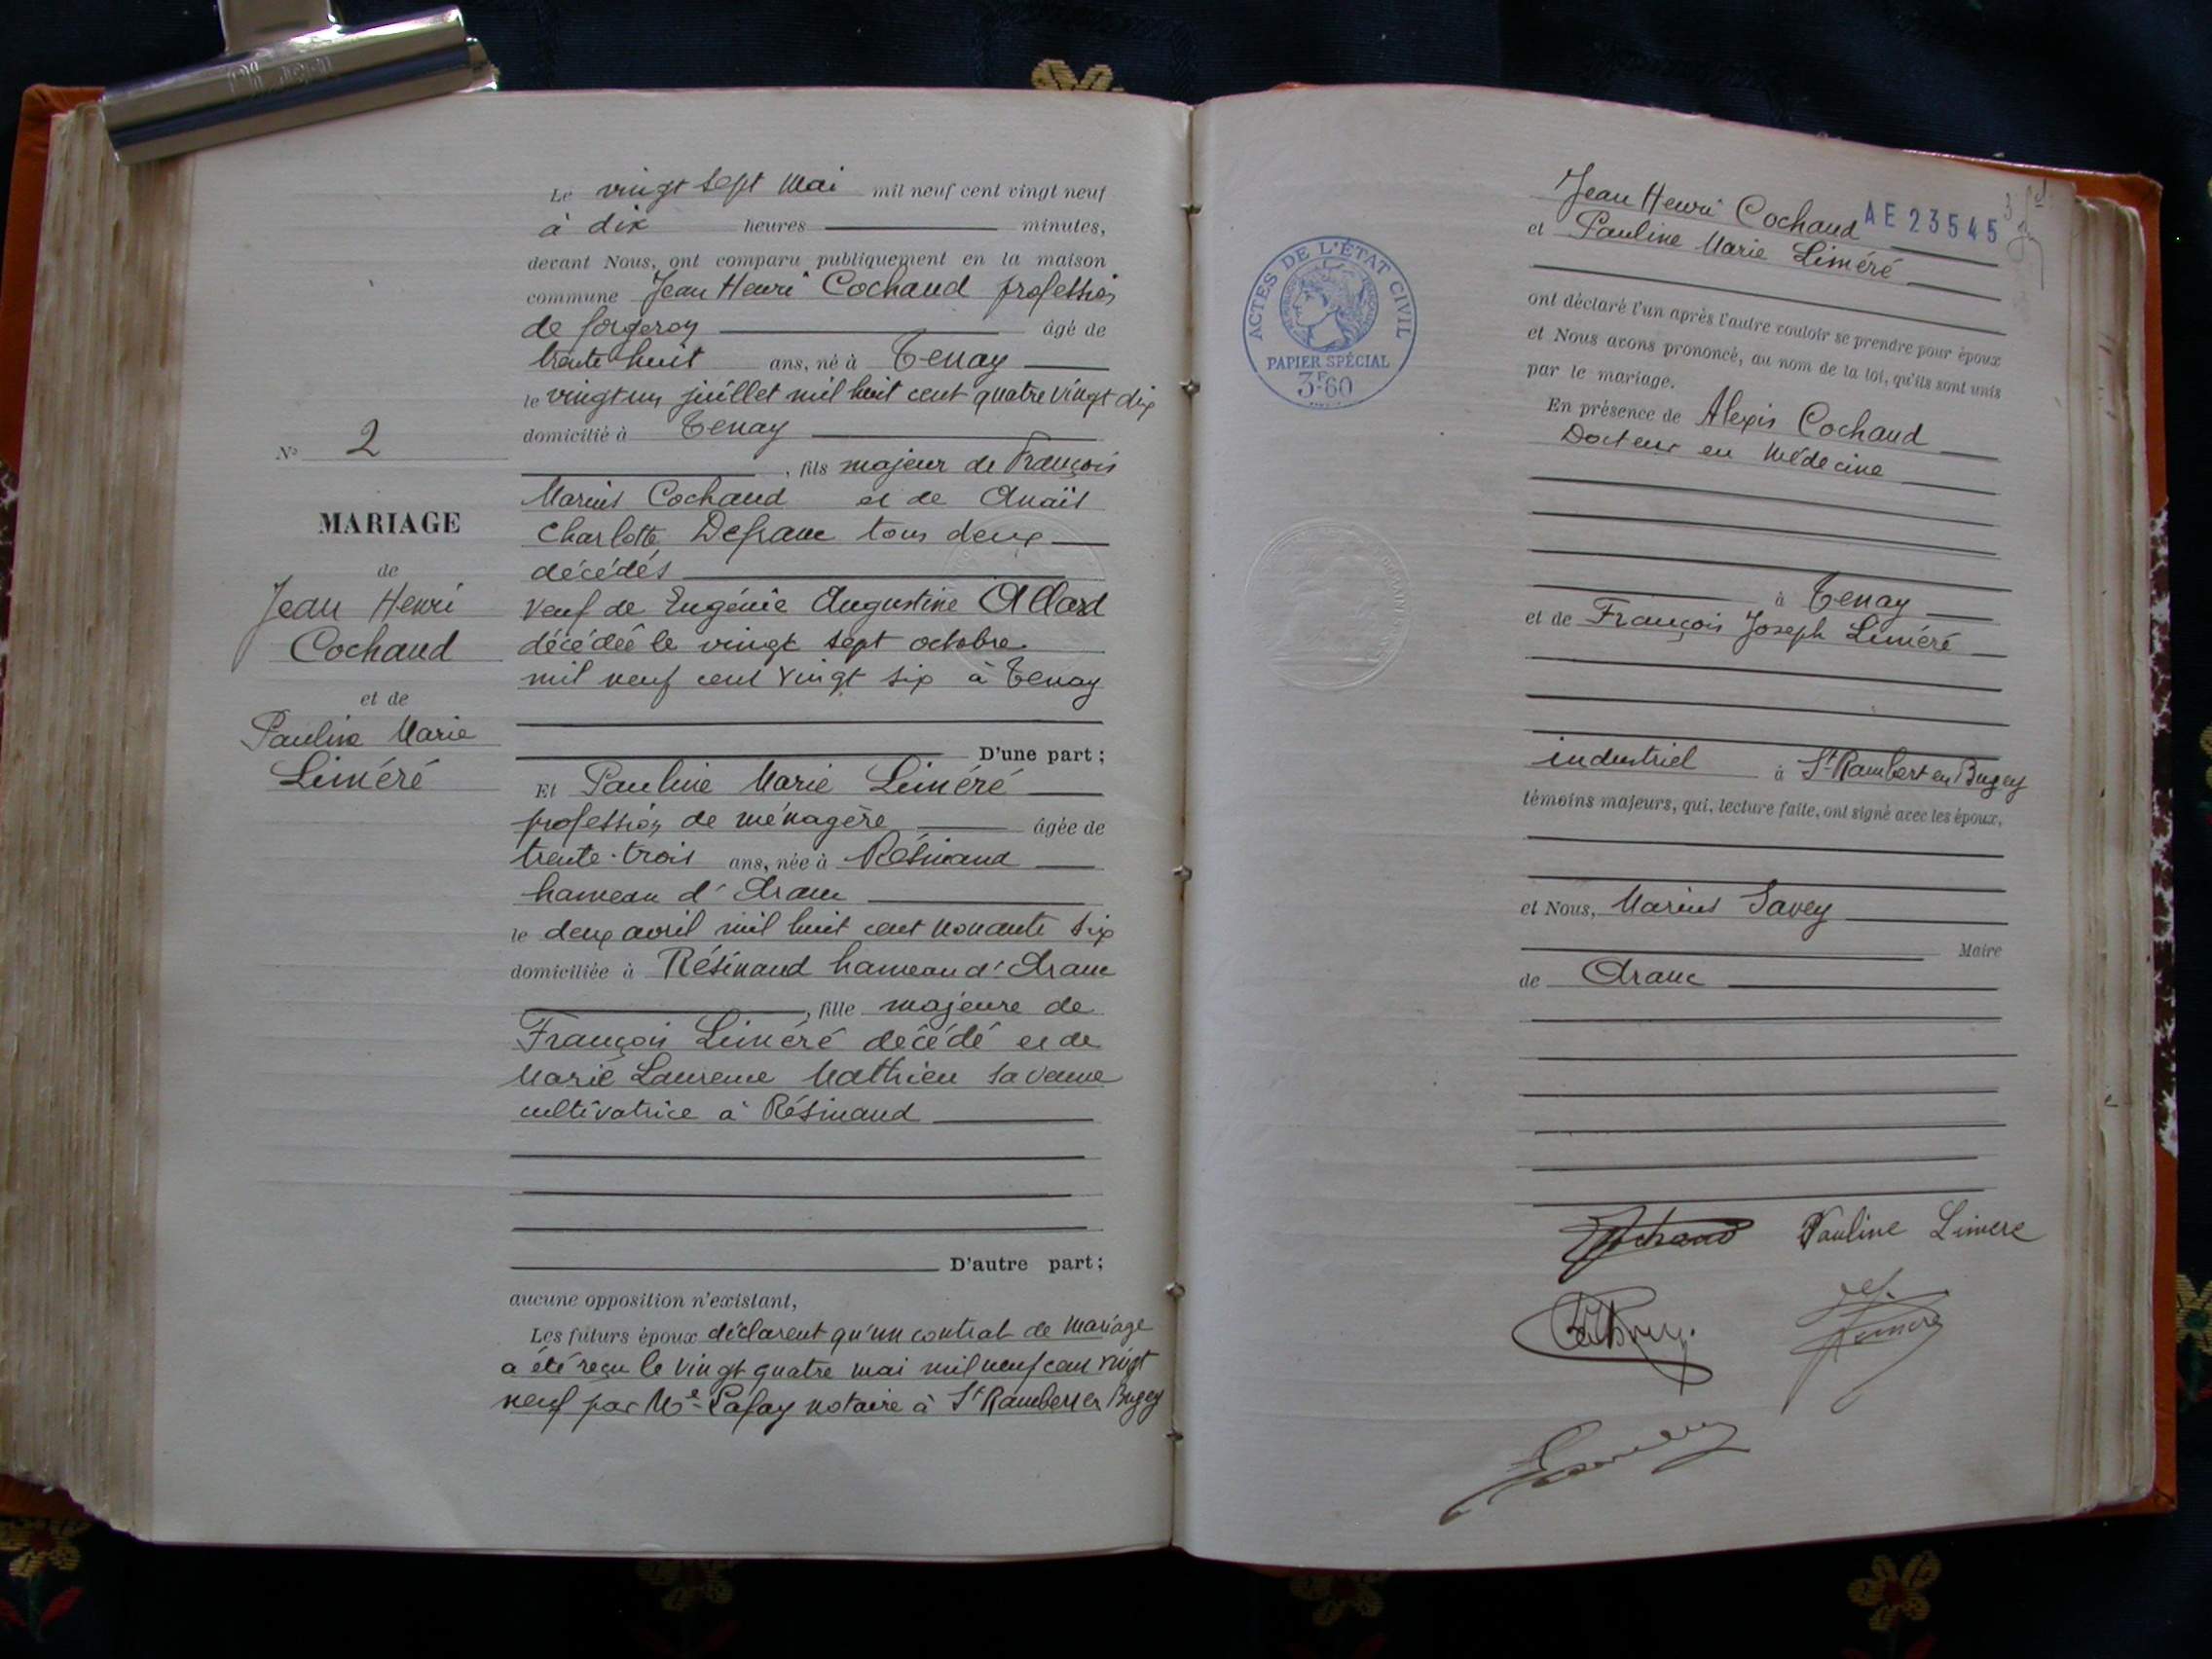 Le vingt sept Mai mil neuf cent vingt neuf
à dix heures minutes,
devant Nous, ont comparu publiquement en la maison
commune Jean Henri Cochaud profession
de forgeron âgé de
trente huit ans, né à Tenay
le vingt un juillet mil huit cent quatre vingt dix
domicilié à Tenay
, fils majeur de François
Marius Cochaud et de Anaïs
Charlotte Defranc tous deux
décédés
Veuf de Eugénie Augustine Allard
décédée le vingt sept octobre
mil neuf cent vingt six à Tenay
D'une part ;
Et Pauline Marie Liméré
profession de ménagère âgée de
trente-trois ans, née à Résinand
hameau d'Aranc
le deux avril mil huit cent nonante six
domiciliée à Résinand hameau d'Aranc
, fille majeure de
François Liméré décédé et de
Marie Laurence Mathieu sa veuve
cultivatrice à Résinand
D'autre part ;
aucune opposition n'existant,
Les futurs époux déclarent qu'un contrat de mariage
a été reçu le vingt quatre mai mil neuf cent vingt
neuf par Me Lafay notaire à St Rambert en Bugey
No 2
MARIAGE
de
Jean Henri
Cochaud
et de
Pauline Marie
Liméré
ACTES DE L'ÉTAT CIVIL
PAPIER SPÉCIAL
3F60
AE 23545
Jean Henri Cochaud
et Pauline Marie Liméré
ont déclaré l'un après l'autre vouloir se prendre pour époux
et Nous avons prononcé, au nom de la loi, qu'ils sont unis
par le mariage.
En présence de Alexis Cochaud
Docteur en Médecine
à Tenay
et de François Joseph Liméré
industriel à St Rambert en Bugey
témoins majeurs, qui, lecture faite, ont signé avec les époux,
et Nous, Marius Savey
Maire
de Aranc
Cochaud Pauline Limere